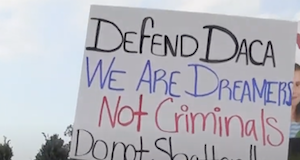 DEFEND DACA
WE ARE DREAMERS
NOT CRIMINALS
Do not